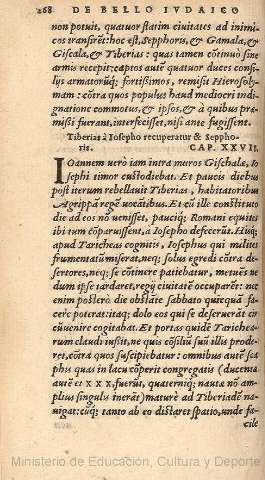 268 DE BELLO IVDAICO
non potuit, quatuor statim ciuitates ad inimi-
cos transirēt: hoc est, Sepphoris, & Gamala, &
Giscala, & Tiberias: quas tamen cōtinuò sine
armis recepit: captos autē quatuor duces consi-
lijs armatorūq; fortissimos, remisit Hierosoly-
mam: cōtra quos populus haud mediocri indi-
gnatione commotus, & ipsos, & à quibus præ-
missi fuerant, interfecisset, nisi ante fugissent.
Tiberias à Iosepho recuperatur & Seppho-
ris. CAP. XXVII.
IOannem uerò iam intra muros Gischalæ, Io
sephi timor custodiebat. Et paucis diebus
post iterum rebellauit Tiberias, habitatoribus
Agrippā regē uocātibus. Et cū ille constituto
die ad eos nō uenisset, pauciq; Romani equites
ibi tum cōparuissent, à Iosepho defecerūt. Hisq;
apud Taricheas cognitis, Iosephus qui milites
frumentatū miserat, neq; solus egredi cōtra de-
sertores, neq; se cōtinere patiebatur, metuēs ne
dum ipse tardaret, regij ciuitatē occuparēt: nec
enim posterò die obstāte sabbato quicquā fa-
cere poterat: itaq; dolo eos qui se deseruerāt cir
cūuenire cogitabat. Et portas quidē Tarichea-
rum claudi iussit, ne quis cōsiliū suū illis prode-
ret, cōtra quos suscipiebatur: omnibus autē sca
phis quas in lacu cōperit congregatis (ducenta
autē et XXX, fuerūt, quaterniq; nautæ nō am-
plius singulis inerāt) maturè ad Tiberiadē na-
uigat: cūq; tanto ab eo distaret spatio, unde fa-
cile
Ministerio de Educación, Cultura y Deporte